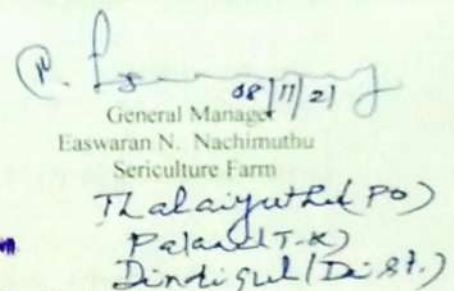 08/11/21
General Manager
Easwaran N. Nachimuthu
Sericulture Farm
Thalaiyuthu (PO)
Palani (T.K)
Dindigul (Dist.)